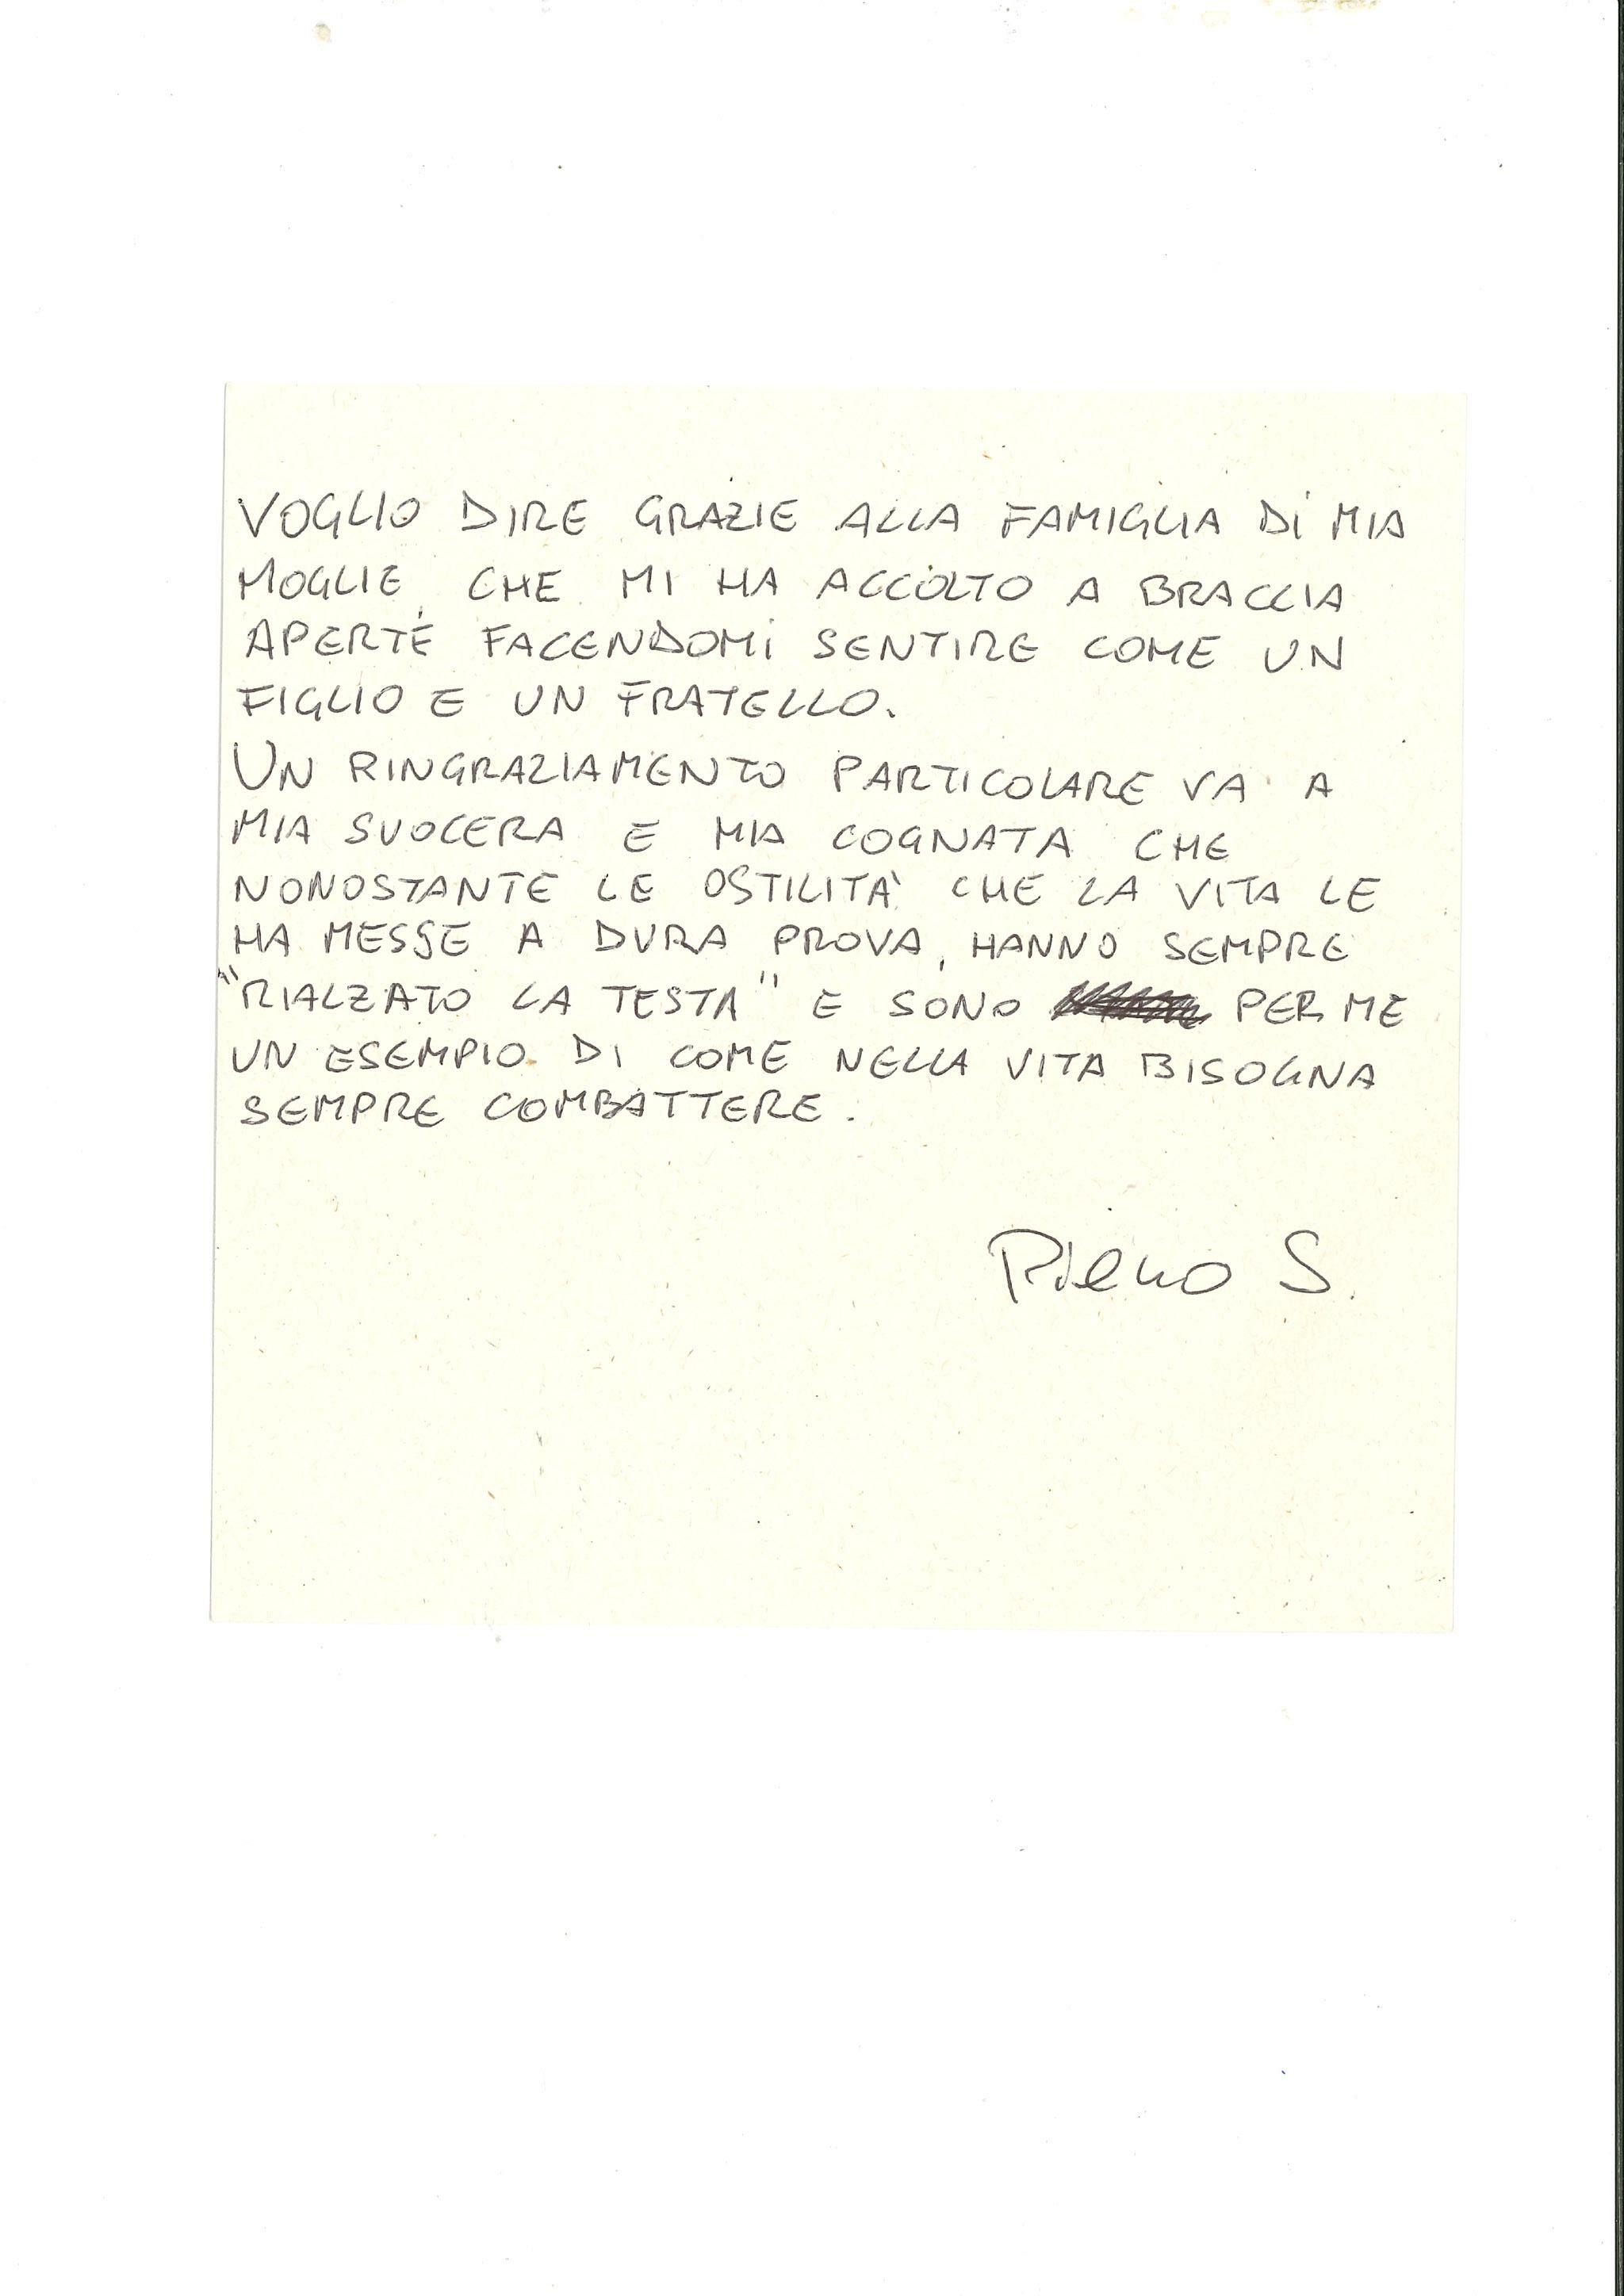 VOGLIO DIRE GRAZIE ALLA FAMIGLIA DI MIA
MOGLIE CHE MI HA ACCOLTO A BRACCIA
APERTE FACENDOMI SENTIRE COME UN
FIGLIO E UN FRATELLO.
UN RINGRAZIAMENTO PARTICOLARE VA A
MIA SUOCERA E MIA COGNATA CHE
NONOSTANTE LE OSTILITA' CHE LA VITA LE
HA MESSE A DURA PROVA, HANNO SEMPRE
"RIALZATO LA TESTA" E SONO PER ME
UN ESEMPIO DI COME NELLA VITA BISOGNA
SEMPRE COMBATTERE.
Piero S.